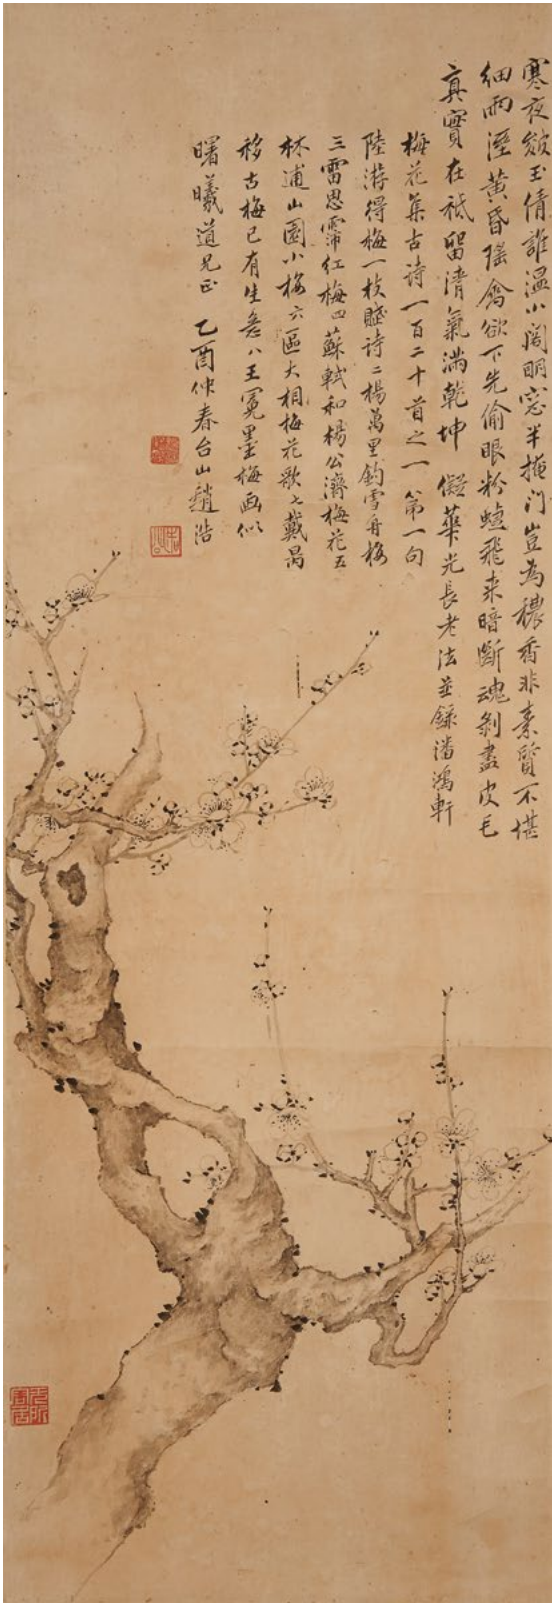 寒夜緣玉倩誰溫小閣明窓半掩門豈為穠香非素質不堪
細雨溼黃昏瑤禽欲下先偷眼粉蝶飛来暗斷魂剝盡皮毛
真實在祇留清氣滿乾坤 儗華光長老法並錄潘鴻軒
梅花集古詩一百二十首之一 第一句
陸游得梅一枝賦詩二楊萬里釣雪舟梅
三雷思霈紅梅四蘇軾和楊公濟梅花五
林逋山園小梅六區大相梅花歌七戴昺
移古梅已有生意八王冕墨梅画似
曙曦道兄正 乙酉仲春台山趙浩